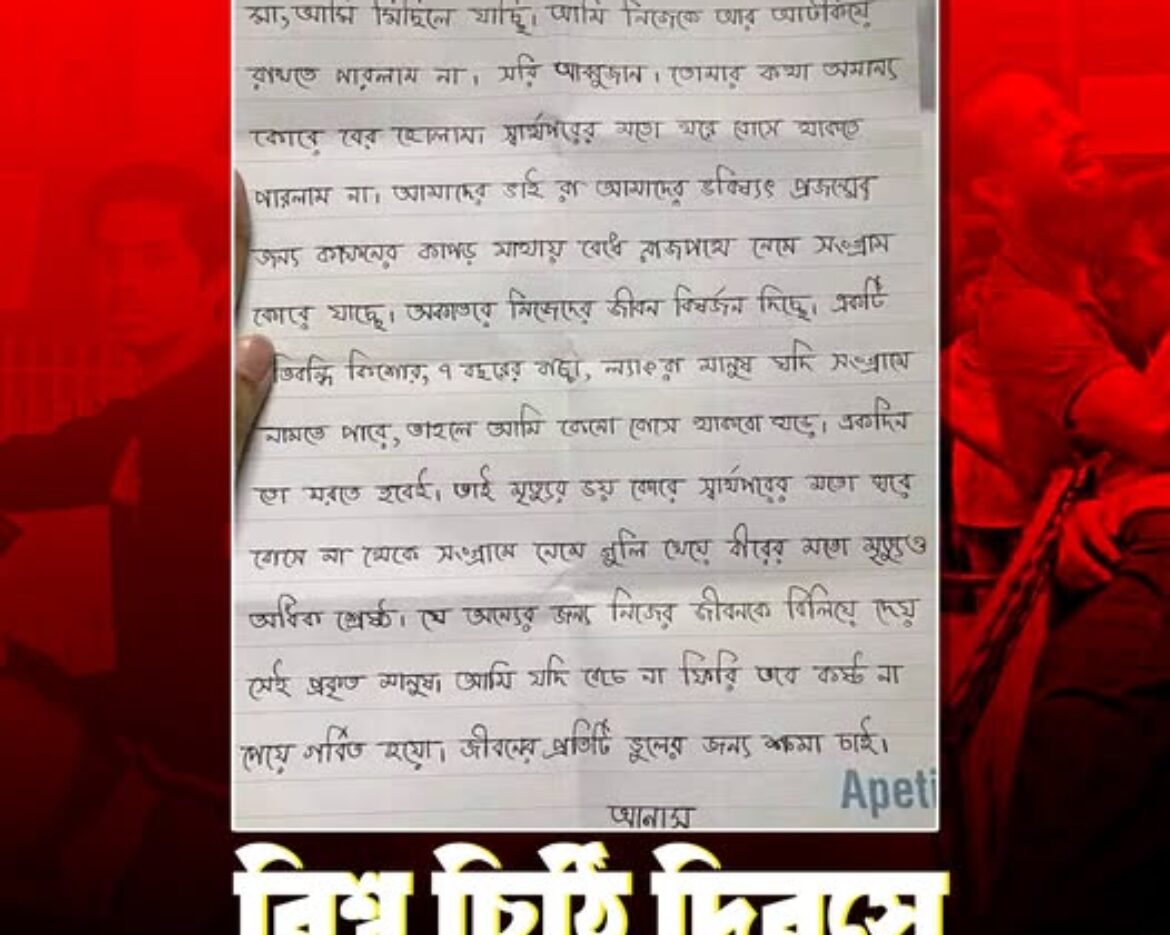 মা, আমি মিছিলে যাচ্ছি। আমি নিজেকে আর আটকিয়ে
রাখতে পারলাম না। সরি আব্বুজান। তোমার কথা অমান্য
কোরে বের হোলাম। স্বার্থপরের মতো ঘরে বোসে থাকতে
পারলাম না। আমাদের ভাই রা আমাদের ভবিষ্যৎ প্রজন্মের
জন্য কাফনের কাপড় মাথায় বেধে রাজপথে নেমে সংগ্রাম
কোরে যাচ্ছে। অকাতরে নিজেদের জীবন বিষর্জন দিচ্ছে। একটি
তিবন্ধি কিশোর, ৭ বছরের বাচ্চা, ল্যাংরা মানুষ যদি সংগ্রামে
নামতে পারে, তাহলে আমি কেনো বোসে থাকবো ঘড়ে। একদিন
তো মরতে হবেই। তাই মৃত্যুর ভয় কোরে স্বার্থপরের মতো ঘরে
বোসে না থেকে সংগ্রামে নেমে গুলি খেয়ে বীরের মতো মৃত্যুও
অধিক শ্রেষ্ঠ। যে অন্যের জন্য নিজের জীবনকে বিলিয়ে দেয়
সেই প্রকৃত মানুষ। আমি যদি বেচে না ফিরি তবে কষ্ট না
পেয়ে গর্বিত হয়ো। জীবনের প্রতিটি ভুলের জন্য ক্ষমা চাই।
আনাস
Apeti
বিশ্ব চিঠি দিবসে